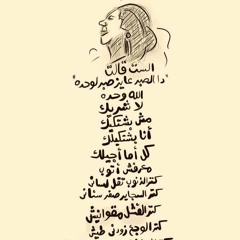 الست قالت
"دا الصبر عايز صبر لوحده"
الله وحده
لا شريك
مش بشتكيلك
أنا بشتكيلك
كل أما أجيلك
معرفش أتوب
كتر الذنوب تقل لساني
كتر السجاير صفر سناني
كتر الفشل مقوانيش
كتر الوجع زودني طيش